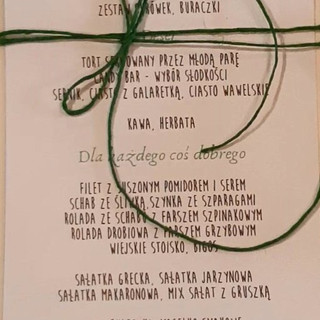 ZESTAW SURÓWEK, BURACZKI
Deser
TORT SERWOWANY PRZEZ MŁODĄ PARĘ
CANDY BAR - WYBÓR SŁODKOŚCI
SERNIK, CIASTO Z GALARETKĄ, CIASTO WAWELSKIE
KAWA, HERBATA
Dla każdego coś dobrego
FILET Z SUSZONYM POMIDOREM I SEREM
SCHAB ZE ŚLIWKĄ,SZYNKA ZE SZPARAGAMI
ROLADA ZE SCHABU Z FARSZEM SZPINAKOWYM
ROLADA DROBIOWA Z FARSZEM GRZYBOWYM
WIEJSKIE STOISKO, BIGOS
SAŁATKA GRECKA, SAŁATKA JARZYNOWA
SAŁATKA MAKARONOWA, MIX SAŁAT Z GRUSZKĄ